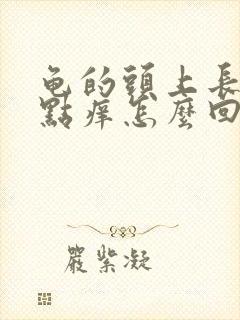 龟的頭上長
點痒怎麼回
嚴紫凝